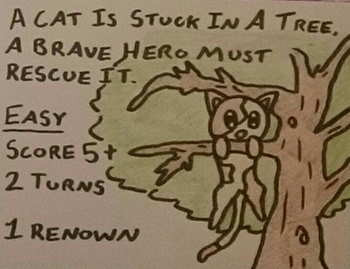 A CAT IS STUCK IN A TREE.
A BRAVE HERO MUST
RESCUE IT.
EASY
SCORE 5+
2 TURNS
1 RENOWN